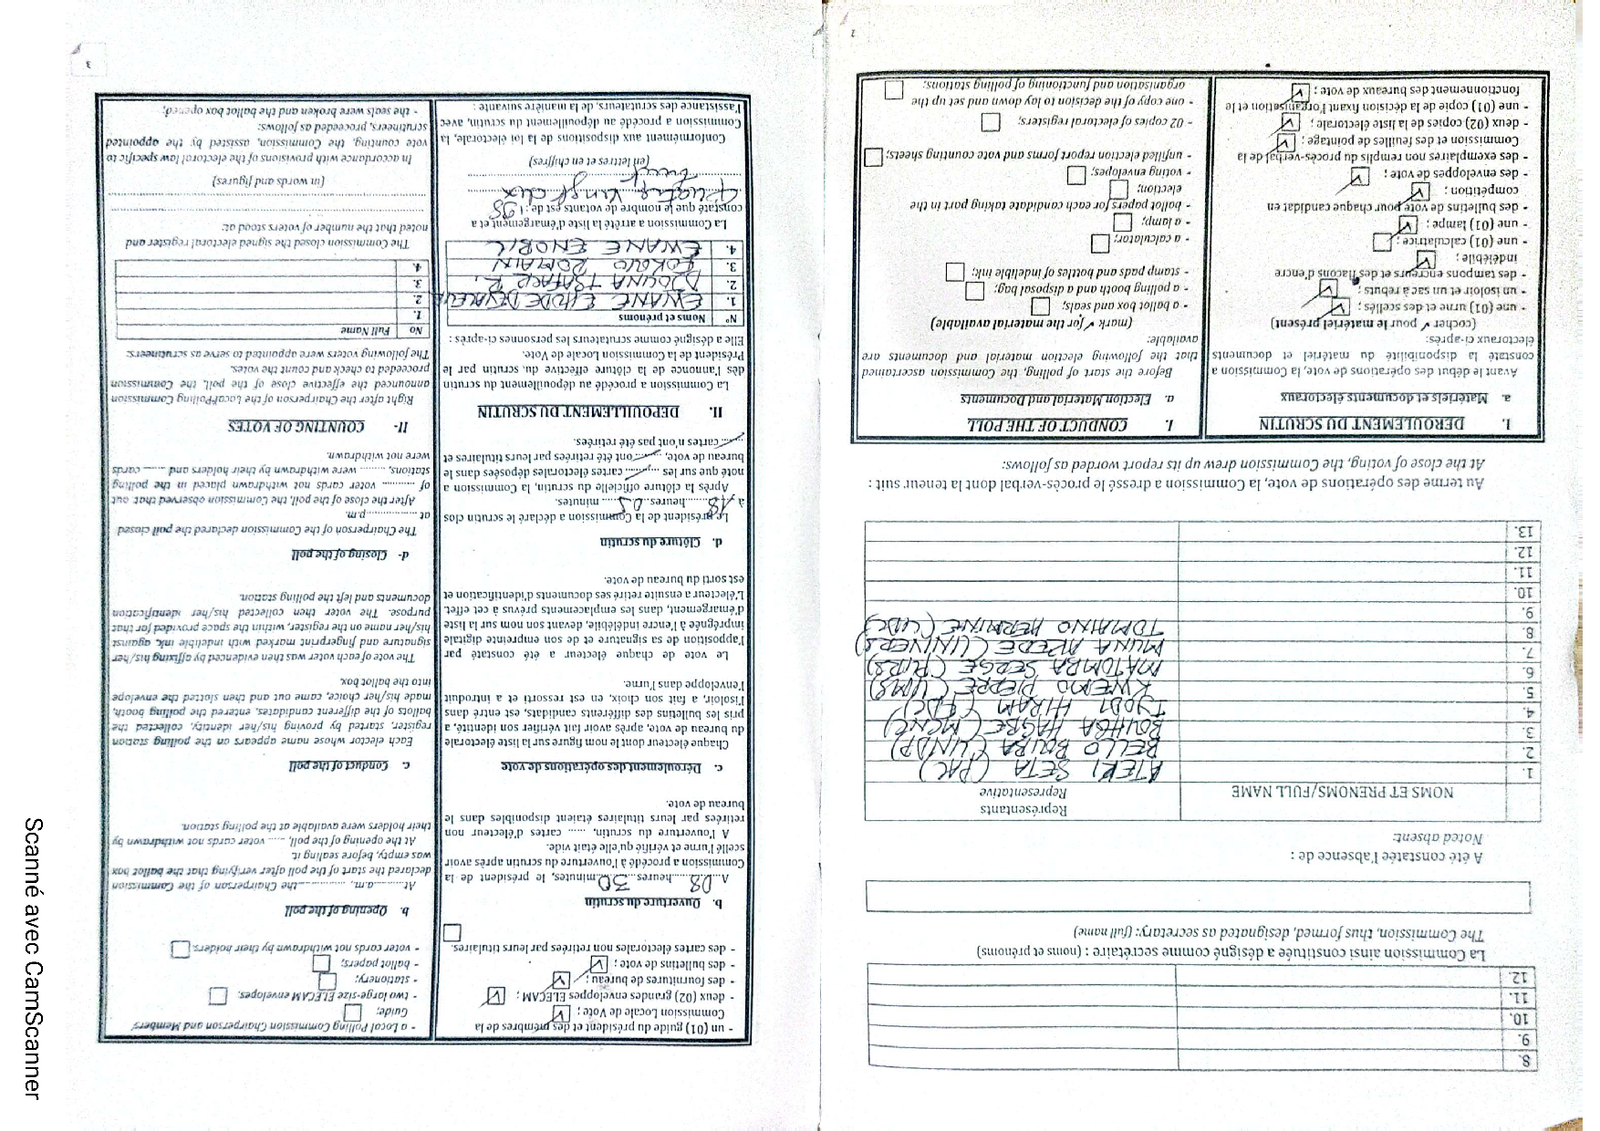 8.
9.
10.
11.
12
La Commission ainsi constituée a désigné comme secrétaire : (noms et prénoms)
The Commission, thus formed, designated as secretary: (full name)
A été constatée l'absence de :
Noted absent:
NOMS ET PRENOMS/FULL NAME
Représentants
Representative
1. ATEKI SETA (PAC)
2. BELLO BOUBA (UNDP)
3. BOUHGA HAGBE (MCNC)
4. IYODI HIRAM (FDC)
5. KWEMO PIERRE (UMS)
6. MATOMBA SERGE
7. MUNA AKERE (UNIVERS)
8. TOMAINO HERMINE (UDC)
9.
10.
11.
12.
13.
Au terme des opérations de vote, la Commission a dressé le procès-verbal dont la teneur suit :
At the close of voting, the Commission drew up its report worded as follows:
I. DEROULEMENT DU SCRUTIN
a. Matériels et documents électoraux
Avant le début des opérations de vote, la Commission a
constaté la disponibilité du matériel et documents
électoraux ci-après:
(cocher ✓ pour le matériel présent)
- une (01) urne et des scellés ;
- un isoloir et un sac à rebuts ;
- des tampons encreurs et des flacons d'encre
indélébile ;
- une (01) calculatrice ;
- une (01) lampe ;
- des bulletins de vote pour chaque candidat en
compétition ;
- des enveloppes de vote ;
- des exemplaires non remplis du procès-verbal de la
Commission et des feuilles de pointage ;
- deux (02) copies de la liste électorale ;
- une (01) copie de la décision fixant l'organisation et le
fonctionnement des bureaux de vote ;
I. CONDUCT OF THE POLL
a. Election Material and Documents
Before the start of polling, the Commission ascertained
that the following election material and documents are
available:
(mark ✓ for the material available)
- a ballot box and seals;
- a polling booth and a disposal bag;
- stamp pads and bottles of indelible ink;
- a calculator;
- a lamp;
- ballot papers for each candidate taking part in the
election;
- voting envelopes;
- unfilled election report forms and vote counting sheets;
- 02 copies of electoral registers;
- one copy of the decision to lay down and set up the
organisation and functioning of polling stations;
2
- un (01) guide du président et des membres de la
Commission Locale de Vote ;
- deux (02) grandes enveloppes ELECAM ;
- des fournitures de bureau ;
- des bulletins de vote ;
- des cartes électorales non retirées par leurs titulaires.
b. Ouverture du scrutin
A 08 heures 30 minutes, le président de la
Commission a procédé à l'ouverture du scrutin après avoir
scellé l'urne et vérifié qu'elle était vide.
A l'ouverture du scrutin, ...... cartes d'électeur non
retirées par leurs titulaires étaient disponibles dans le
bureau de vote.
c. Déroulement des opérations de vote
Chaque électeur dont le nom figure sur la liste électorale
du bureau de vote, après avoir fait vérifier son identité, a
pris les bulletins des différents candidats, est entré dans
l'isoloir, a fait son choix, en est ressorti et a introduit
l'enveloppe dans l'urne.
Le vote de chaque électeur a été constaté par
l'apposition de sa signature et de son empreinte digitale
imprégnée à l'encre indélébile, devant son nom sur la liste
d'émargement, dans les emplacements prévus à cet effet.
L'électeur a ensuite retiré ses documents d'identification et
est sorti du bureau de vote.
d. Clôture du scrutin
Le président de la Commission a déclaré le scrutin clos
à 18 heures minutes.
Après la clôture officielle du scrutin, la Commission a
noté que sur les ...... cartes électorales déposées dans le
bureau de vote, ...... ont été retirées par leurs titulaires et
...... cartes n'ont pas été retirées.
II. DEPOUILLEMENT DU SCRUTIN
La Commission a procédé au dépouillement du scrutin
dès l'annonce de la clôture effective du scrutin par le
Président de la Commission Locale de Vote.
Elle a désigné comme scrutateurs les personnes ci-après :
N° Noms et prénoms
1. EWANE EHODE
2. DJOUNA
3. ROMAIN
4. EWANE ENOBIL
La Commission a arrêté la liste d'émargement et a
constaté que le nombre de votants est de :
Quatre Vingt dix
neuf
(en lettres et en chiffres)
Conformément aux dispositions de la loi électorale, la
Commission a procédé au dépouillement du scrutin, avec
l'assistance des scrutateurs, de la manière suivante :
- a Local Polling Commission Chairperson and Members'
Guide;
- two large-size ELECAM envelopes.
- stationery;
- ballot papers;
- voter cards not withdrawn by their holders.
b. Opening of the poll
At............a.m, ............the Chairperson of the Commission
declared the start of the poll after verifying that the ballot box
was empty, before sealing it.
At the opening of the poll, ...... voter cards not withdrawn by
their holders were available at the polling station.
c. Conduct of the poll
Each elector whose name appears on the polling station
register, started by proving his/her identity, collected the
ballots of the different candidates, entered the polling booth,
made his/her choice, came out and then slotted the envelope
into the ballot box.
The vote of each voter was then evidenced by affixing his/her
signature and fingerprint marked with indelible ink, against
his/her name on the register, within the space provided for that
purpose. The voter then collected his/her identification
documents and left the polling station.
d- Closing of the poll
The Chairperson of the Commission declared the poll closed
at ..................p.m.
After the close of the poll, the Commission observed that out
of .......... voter cards not withdrawn placed in the polling
stations, ........ were withdrawn by their holders and ...... cards
were not withdrawn.
II- COUNTING OF VOTES
Right after the Chairperson of the Local Polling Commission
announced the effective close of the poll, the Commission
proceeded to check and count the votes.
The following voters were appointed to serve as scrutineers:
No Full Name
1.
2.
3.
4.
The Commission closed the signed electoral register and
noted that the number of voters stood at:
(in words and figures)
In accordance with provisions of the electoral law specific to
vote counting, the Commission, assisted by the appointed
scrutineers, proceeded as follows:
- the seals were broken and the ballot box opened;
3
Scanné avec CamScanner